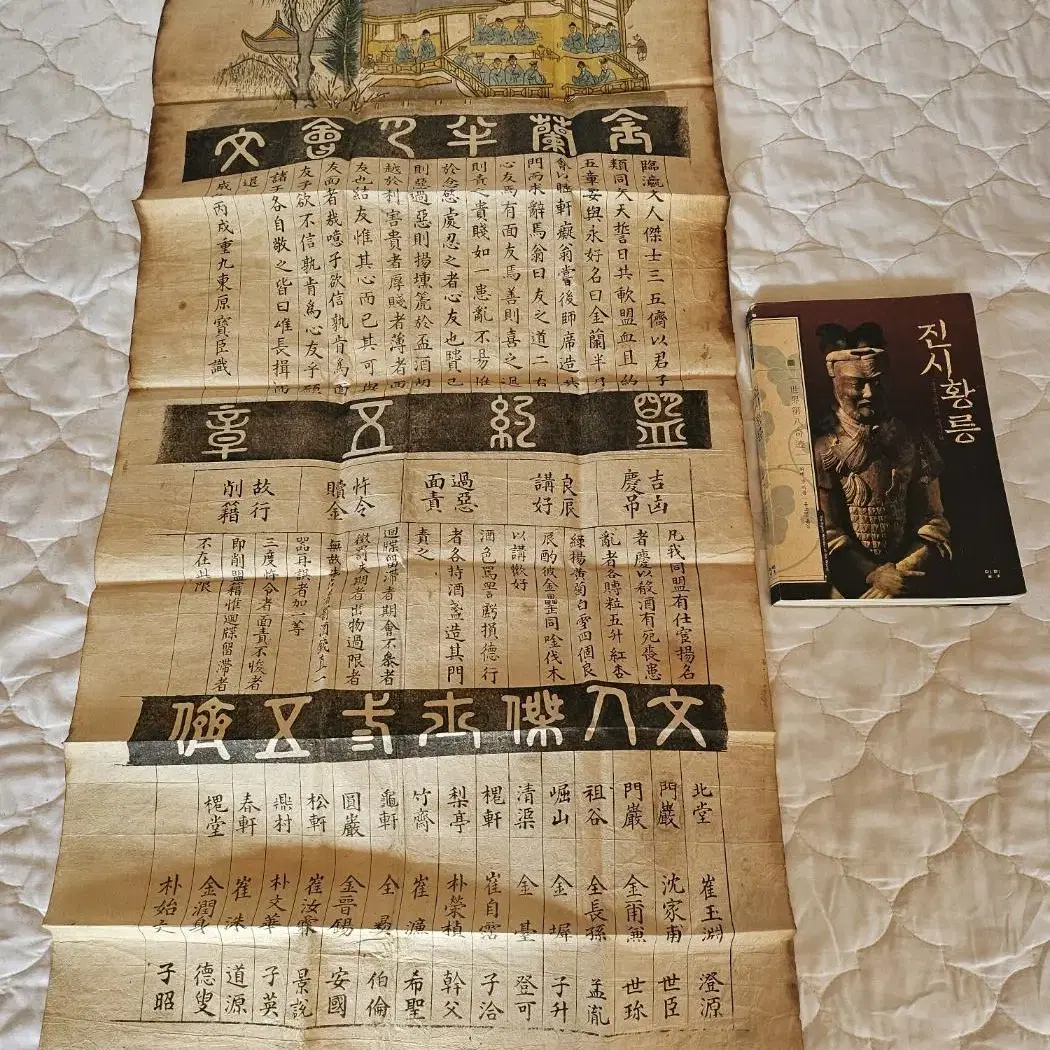 金蘭半月會文
臨瀛文人傑士三五儕以君子
類同人天誓日共軟盟血且約
五章妥與永好名曰金蘭半月
會以睡軒癡翁嘗後師席造其
門而求辭焉翁曰友之道二有
心友焉有面友焉善則喜之過
則責之貴賤如一患亂不易惟
於忿慾處忍之者心友也
則逞過惡則揚壎篪於盃酒胡
越於利害貴者厚賤者薄者面
友也結友惟其心而已其可與
友面者哉噫子欲信孰肯爲面
友乎欲不信孰肯爲心友乎願
諸子各自敬之皆曰唯長揖而
退
成化丙戌重九東原寶臣識
盟約五章
吉凶慶弔
良辰講好
過惡面責
忤令贖金
故行削籍
凡我同盟有仕宦揚名
者慶以般酒有宛喪患
亂者各賻粒五升紅杏
綠楊黃菊白雪四個良
辰酌彼金罍同唫伐木
以講歡好
酒色罵詈虧損德行
者各持酒盞造其門
責之
迴牒留滯者期會不參者
徵罰失期者出物過限者
罰再誤者加一等
三度忤令者面責不悛者
即削盟籍惟迴牒留滯者
不在此限
文人傑士三五儉
北堂 崔玉淵 澄源
門巖 沈家甫 世臣
門巖 金爾兼 世珎
祖谷 全長孫 孟胤
崛山 金墀 子升
清渠 金臺 登可
槐軒 崔自霑 子洽
梨亭 朴榮楨 幹父
竹齋 崔濂 希聖
龜軒 全易 伯倫
圓巖 金晉錫 安國
松軒 崔汝霖 景說
鼎村 朴文華 子英
春軒 崔洙 道源
槐堂 金潤身 德叟
朴始文 子昭
진시황릉